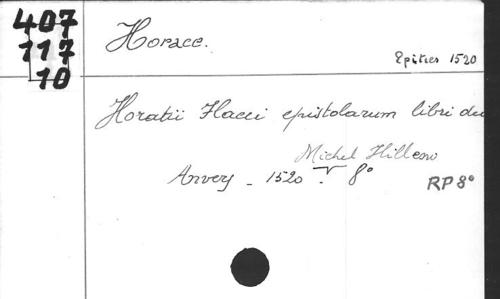 407
117
10
Horace.
Epitres 1520
Horatii Flacci epistolarum libri du
Michel Hillenu
Anvers - 1520 - 8°
RP 8°